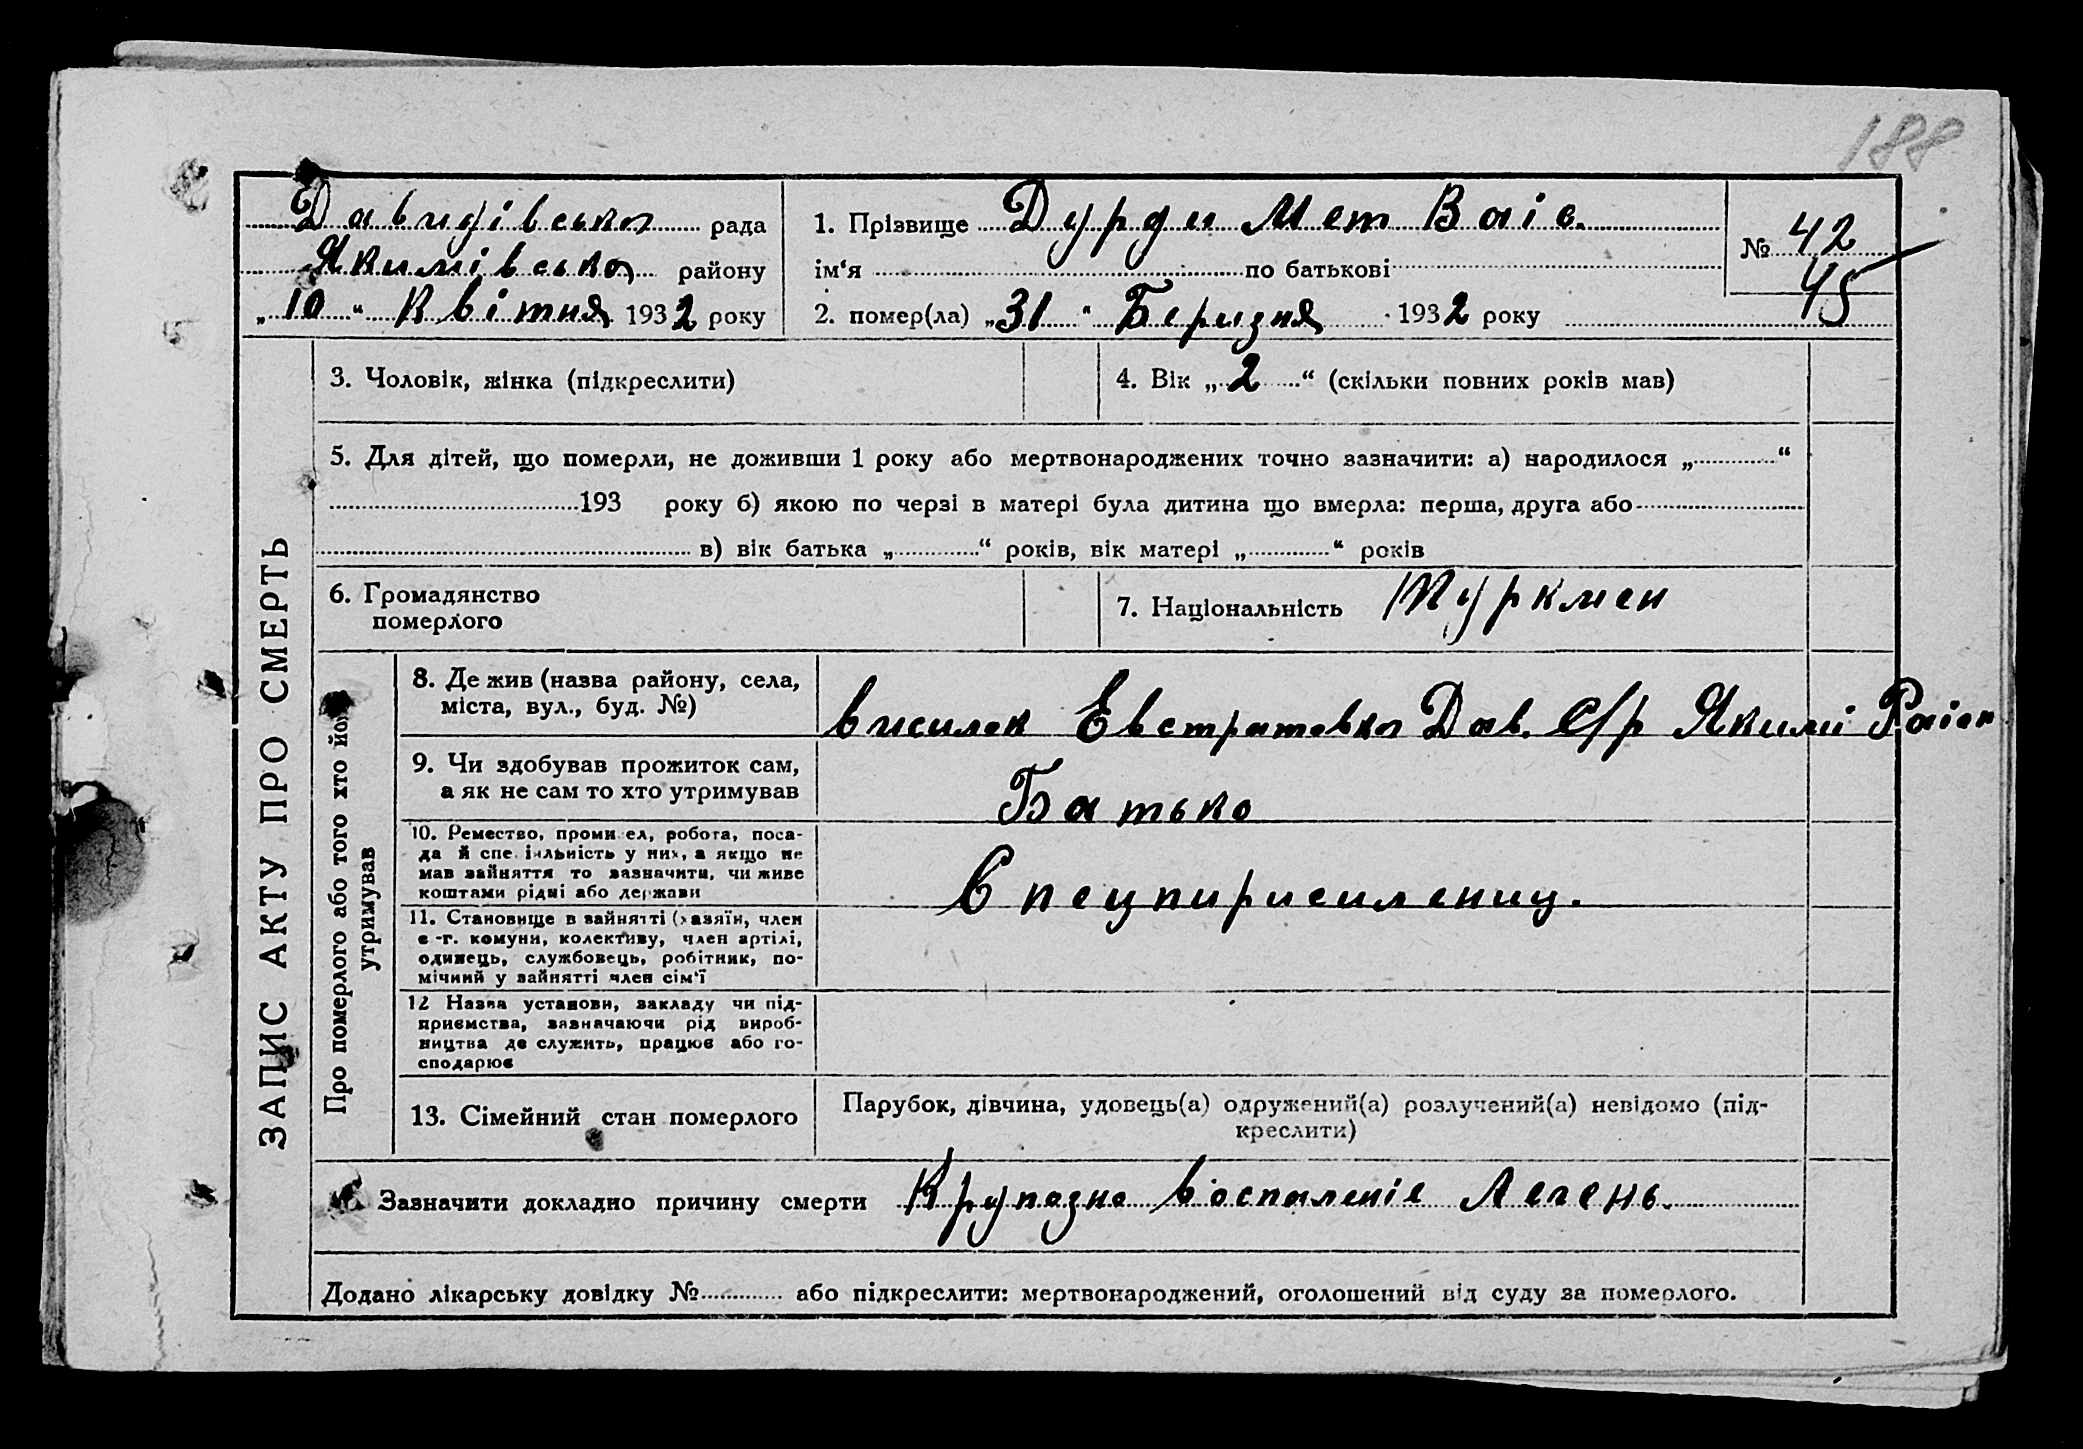 188
Давидівська рада
Якимівська району
„10“ Квітня 1932 року
1. Прізвище Дурди Мет Ваіс.
ім‘я по батькові
2. помер(ла) „31“ Березня 1932 року
№ 42
45
ЗАПИС АКТУ ПРО СМЕРТЬ
3. Чоловік, жінка (підкреслити)
4. Вік „2“ (скільки повних років мав)
5. Для дітей, що померли, не доживши 1 року або мертвонароджених точно зазначити: а) народилося „ “
193 року б) якою по черзі в матері була дитина що вмерла: перша, друга або
в) вік батька „ “ років, вік матері „ “ років
6. Громадянство
померлого
7. Національність Туркмен
Про померлого або того хто його
утримував
8. Де жив (назва району, села,
міста, вул., буд. №)
висилок Евстратовка Дав. С/р Якимі Раіон
9. Чи здобував прожиток сам,
а як не сам то хто утримував
Батько
10. Ремество, промисел, робота, поса-
да й спеціяльність у них, а якщо не
мав зайняття то зазначити, чи живе
коштами рідні або держави
Спецпириселенец.
11. Становище в зайнятті (хазяїн, член
с-г. комуни, колективу, член артілі,
одинець, службовець, робітник, по-
мічний у зайнятті член сім‘ї
12 Назва установи, закладу чи під-
приємства, зазначаючи рід вироб-
ництва де служить, працює або го-
сподарює
13. Сімейний стан померлого
Парубок, дівчина, удовець(а) одружений(а) розлучений(а) невідомо (під-
креслити)
Зазначити докладно причину смерти Крупозне воспаленіе Легень.
Додано лікарську довідку № або підкреслити: мертвонароджений, оголошений від суду за померлого.